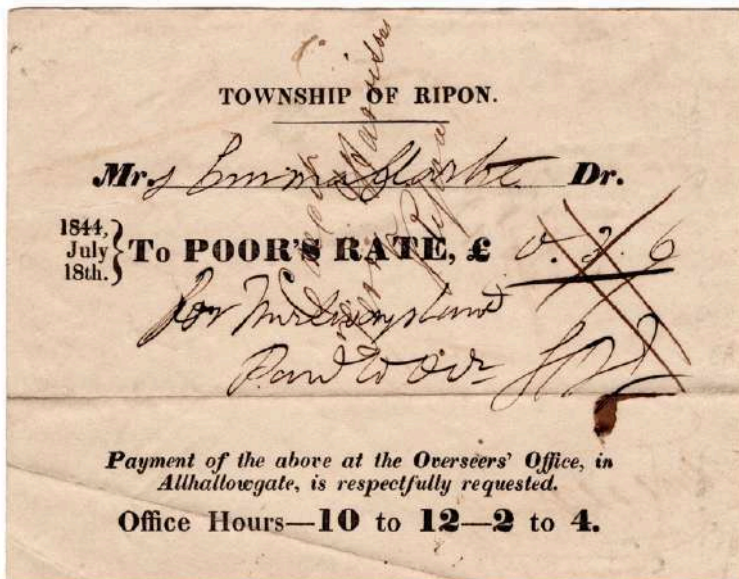 TOWNSHIP OF RIPON.
Mrs Emma Clarke Dr.
1844,
July
18th.
To POOR'S RATE, £ 0. 2. 6
for
Payment of the above at the Overseers' Office, in
Allhallowgate, is respectfully requested.
Office Hours—10 to 12—2 to 4.